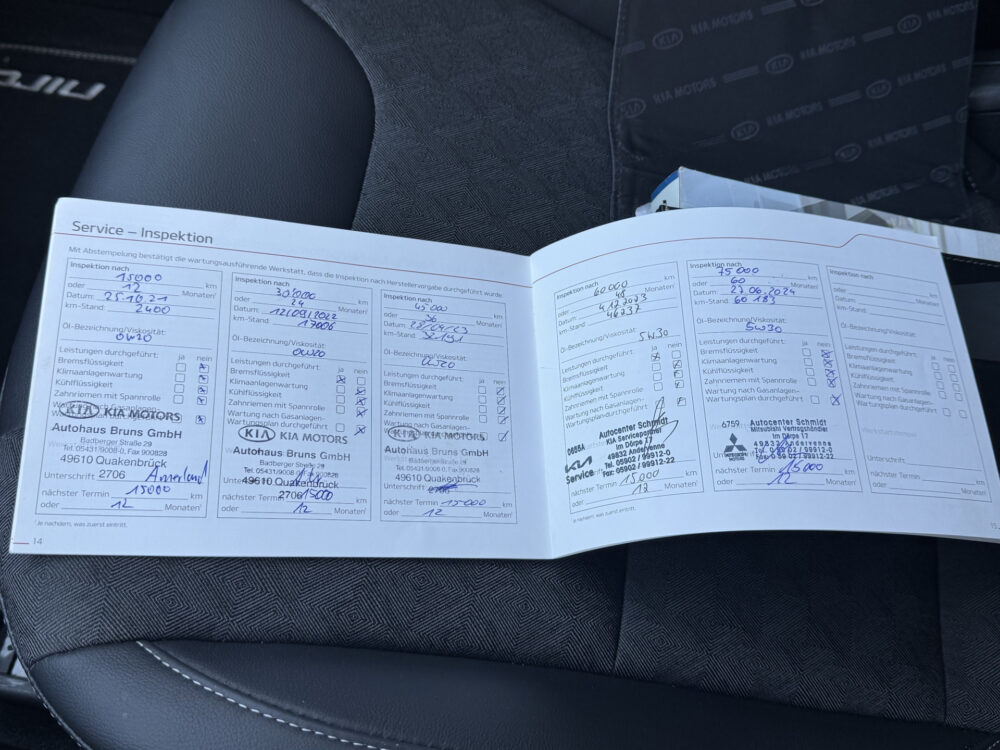 Service – Inspektion
Mit Abstempelung bestätigt die wartungsausführende Werkstatt, dass die Inspektion nach Herstellervorgabe durchgeführt wurde
Inspektion nach
15000 km
oder 12 Monaten¹
Datum: 25.10.21
km-Stand: 2400
Öl-Bezeichnung/Viskosität:
0W20
Leistungen durchgeführt: ja nein
Bremsflüssigkeit
Klimaanlagenwartung
Kühlflüssigkeit
Zahnriemen mit Spannrolle
KIA KIA MOTORS
Autohaus Bruns GmbH
Badberger Straße 29
Tel. 05431/9008-0, Fax 900828
49610 Quakenbrück
Unterschrift 2706
nächster Termin 15000 km
oder 12 Monaten¹
¹ Je nachdem, was zuerst eintritt.
14
Inspektion nach
30.000 km
oder 24 Monaten¹
Datum: 12/09/2022
km-Stand: 17006
Öl-Bezeichnung/Viskosität:
0W20
Leistungen durchgeführt: ja nein
Bremsflüssigkeit
Klimaanlagenwartung
Kühlflüssigkeit
Zahnriemen mit Spannrolle
Wartung nach Gasanlagen-
Wartungsplan durchgeführt
KIA KIA MOTORS
Autohaus Bruns GmbH
Badberger Straße 29
Tel. 05431/9008
49610 Quakenbrück
2706
nächster Termin 15000 km
oder 12 Monaten¹
Inspektion nach
45000 km
oder 36 Monaten¹
Datum:
km-Stand:
Öl-Bezeichnung/Viskosität:
0W20
Leistungen durchgeführt: ja nein
Bremsflüssigkeit
Klimaanlagenwartung
Kühlflüssigkeit
Zahnriemen mit Spannrolle
Wartung nach Gasanlagen-
KIA KIA MOTORS
Autohaus Bruns GmbH
Badberger Straße 29
Tel. 05431/9008-0, Fax 900828
49610 Quakenbrück
Unterschrift
nächster Termin 15000 km
oder 12 Monaten¹
Inspektion nach
60.000 km
oder 48 Monaten¹
Datum: 4.12.2023
km-Stand: 46237
Öl-Bezeichnung/Viskosität:
5W30
Leistungen durchgeführt: ja nein
Bremsflüssigkeit
Klimaanlagenwartung
Kühlflüssigkeit
Zahnriemen mit Spannrolle
Wartung nach Gasanlagen-
Wartungsplan durchgeführt
0685A
Autocenter Schmidt
KIA Servicepartner
Im Dörpe 17
49832 Andervenne
Tel. 05902 / 99912-0
Fax: 05902 / 99912-22
KIA
Service
nächster Termin 15000 km
oder 12 Monaten¹
¹ Je nachdem, was zuerst eintritt.
Inspektion nach
75000 km
oder 60 Monaten¹
Datum: 27.06.2024
km-Stand: 60 183
Öl-Bezeichnung/Viskosität:
5W30
Leistungen durchgeführt: ja nein
Bremsflüssigkeit
Klimaanlagenwartung
Kühlflüssigkeit
Zahnriemen mit Spannrolle
Wartung nach Gasanlagen-
Wartungsplan durchgeführt
6759
Autocenter Schmidt
Mitsubishi Vertragshändler
Im Dörpe 17
49832 Andervenne
MITSUBISHI
MOTORS
nächster Termin 15000 km
oder 12 Monaten¹
Inspektion nach
km
oder Monaten¹
Datum:
km-Stand:
Öl-Bezeichnung/Viskosität:
Leistungen durchgeführt: ja nein
Bremsflüssigkeit
Klimaanlagenwartung
Kühlflüssigkeit
Zahnriemen mit Spannrolle
Wartung nach Gasanlagen-
Wartungsplan durchgeführt
Unterschrift:
nächster Termin km
oder Monaten¹
15
KIA MOTORS